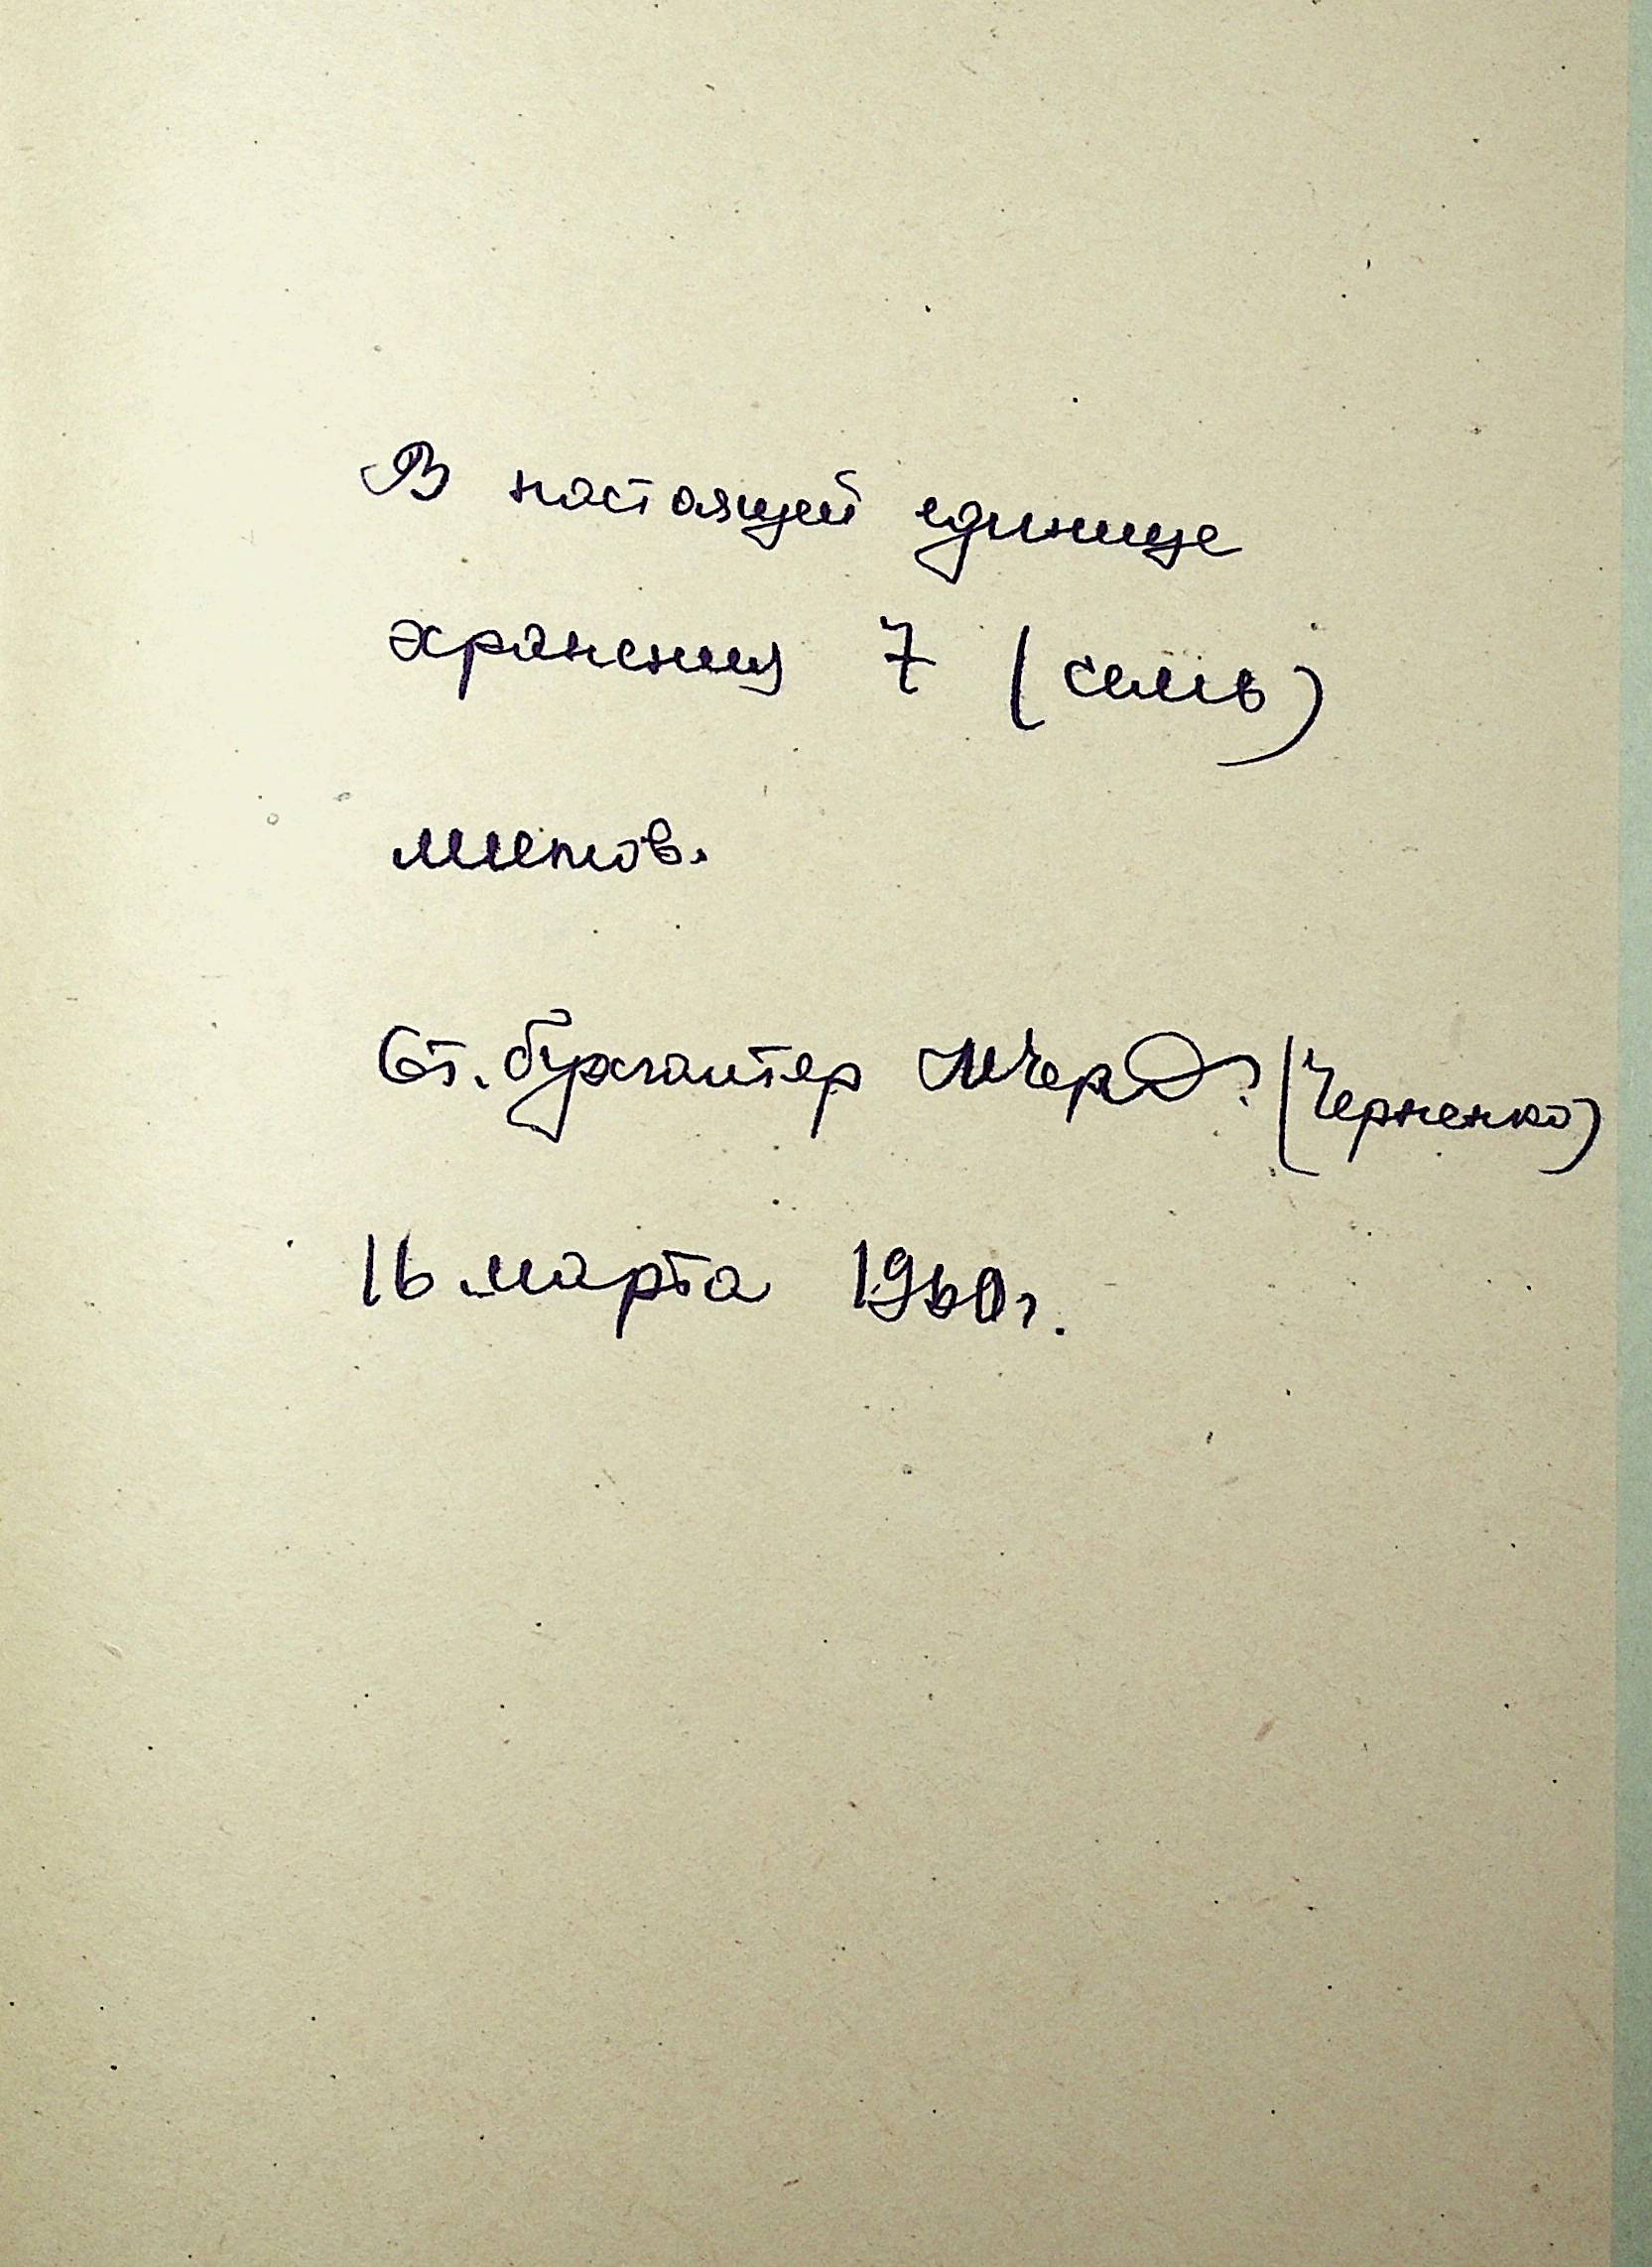 В настоящей единице
хранения 7 (семь)
листов.
Ст. бухгалтер МЧер (Черненко)
16 марта 1960 г.